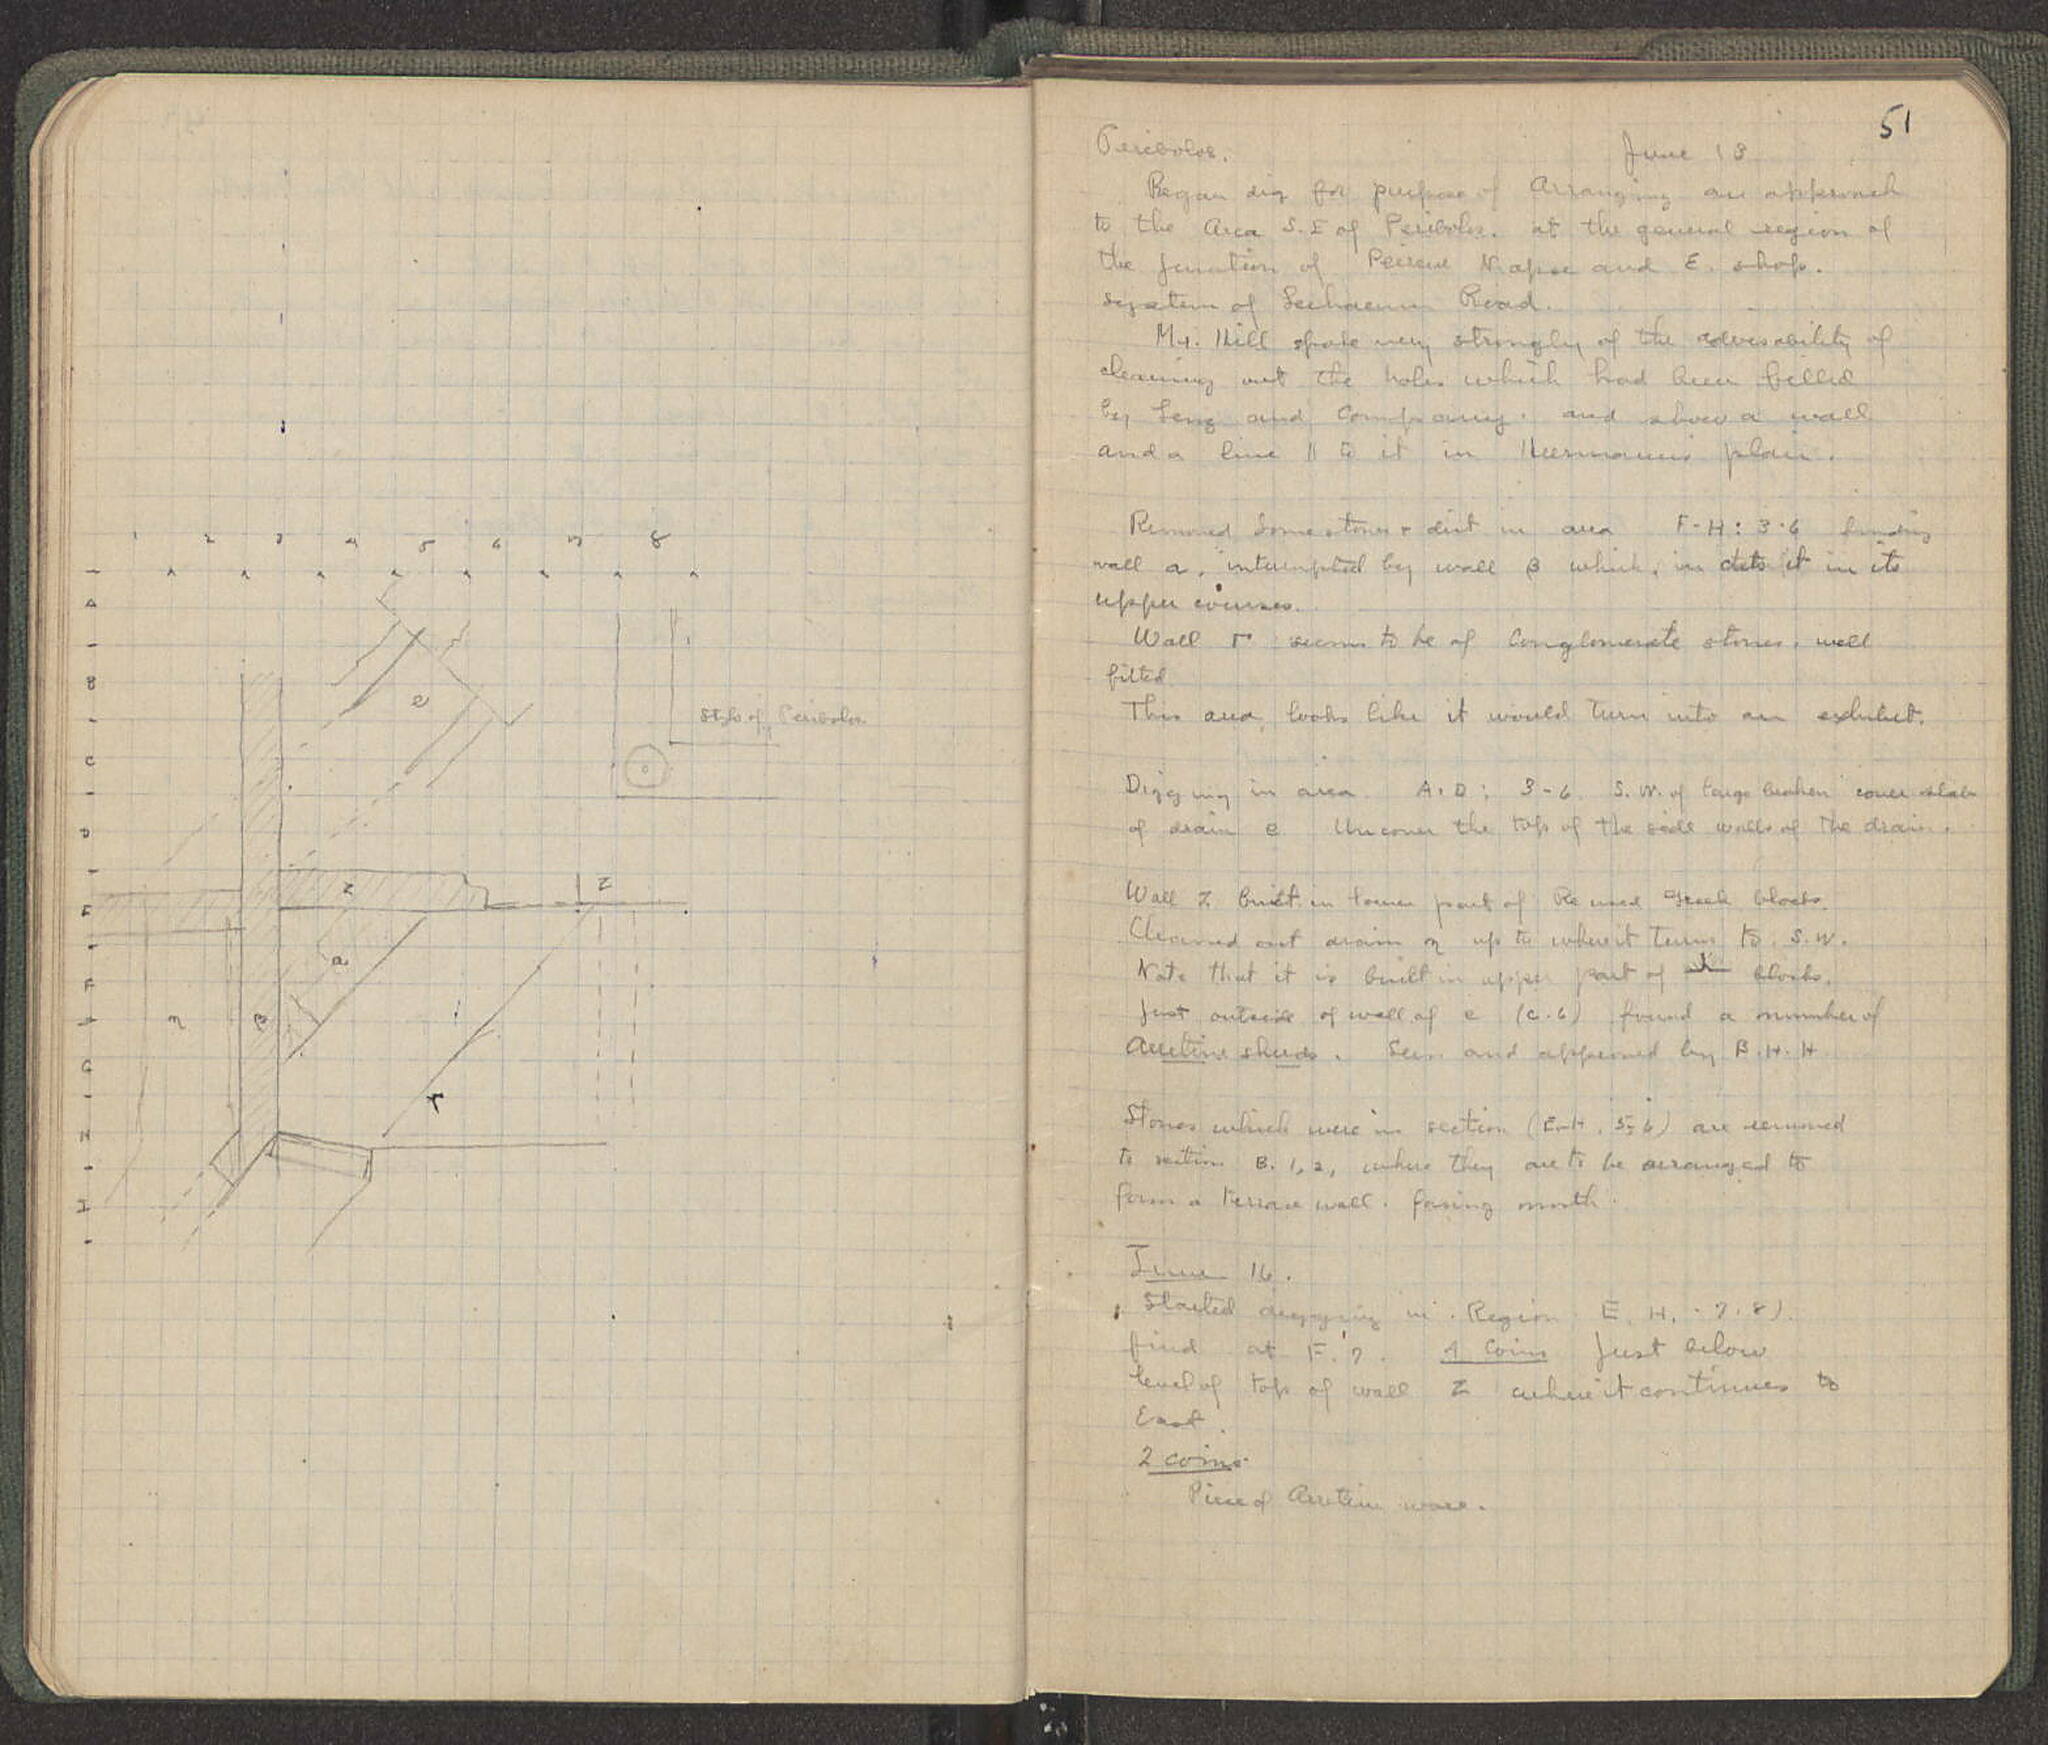 1 2 3 4 5 6 7 8
A
B
e
Stylo of Peribolos
C
D
E
z
z
a
F
η
β
G
Γ
H
I
51
Peribolos. June 13
Began dig for purpose of arranging an approach
to the area S.E of Peribolos. at the general region of
the junction of Peirene N apse and E. shop.
system of Lechaeum Road.
Mr. Hill spoke very strongly of the advisability of
cleaning out the holes which had been filled
by Leng and Company. and show a wall
and a line || to it in Hermann's plan.
Removed some stones & dirt in area F-H: 3-6 finding
wall a, interrupted by wall β which, in it in its
upper courses.
Wall Γ seems to be of Conglomerate stones, well
fitted.
This area, looks like it would turn into an exhibit.
Digging in area A.D: 3-6 S.W. of large broken cover slab
of drain e Uncover the tops of the side walls of the drain.
Wall Z built in lower part of Re used Greek blocks.
Cleaned out drain η up to where it turns to S.W.
Note that it is built in upper part of blocks.
Just outside of wall of e (C.6) found a number of
Arretine sherds. Seen and approved by B.H.H.
Stones which were in section (E-H, 5-6) are removed
to section B. 1, 2, where they are to be arranged to
form a terrace wall. facing north.
June 16.
Started digging in Region E. H. - 7.8).
find at F.7. 4 Coins Just below
level of top of wall Z where it continues to
East.
2 coins.
Piece of Arretine ware.